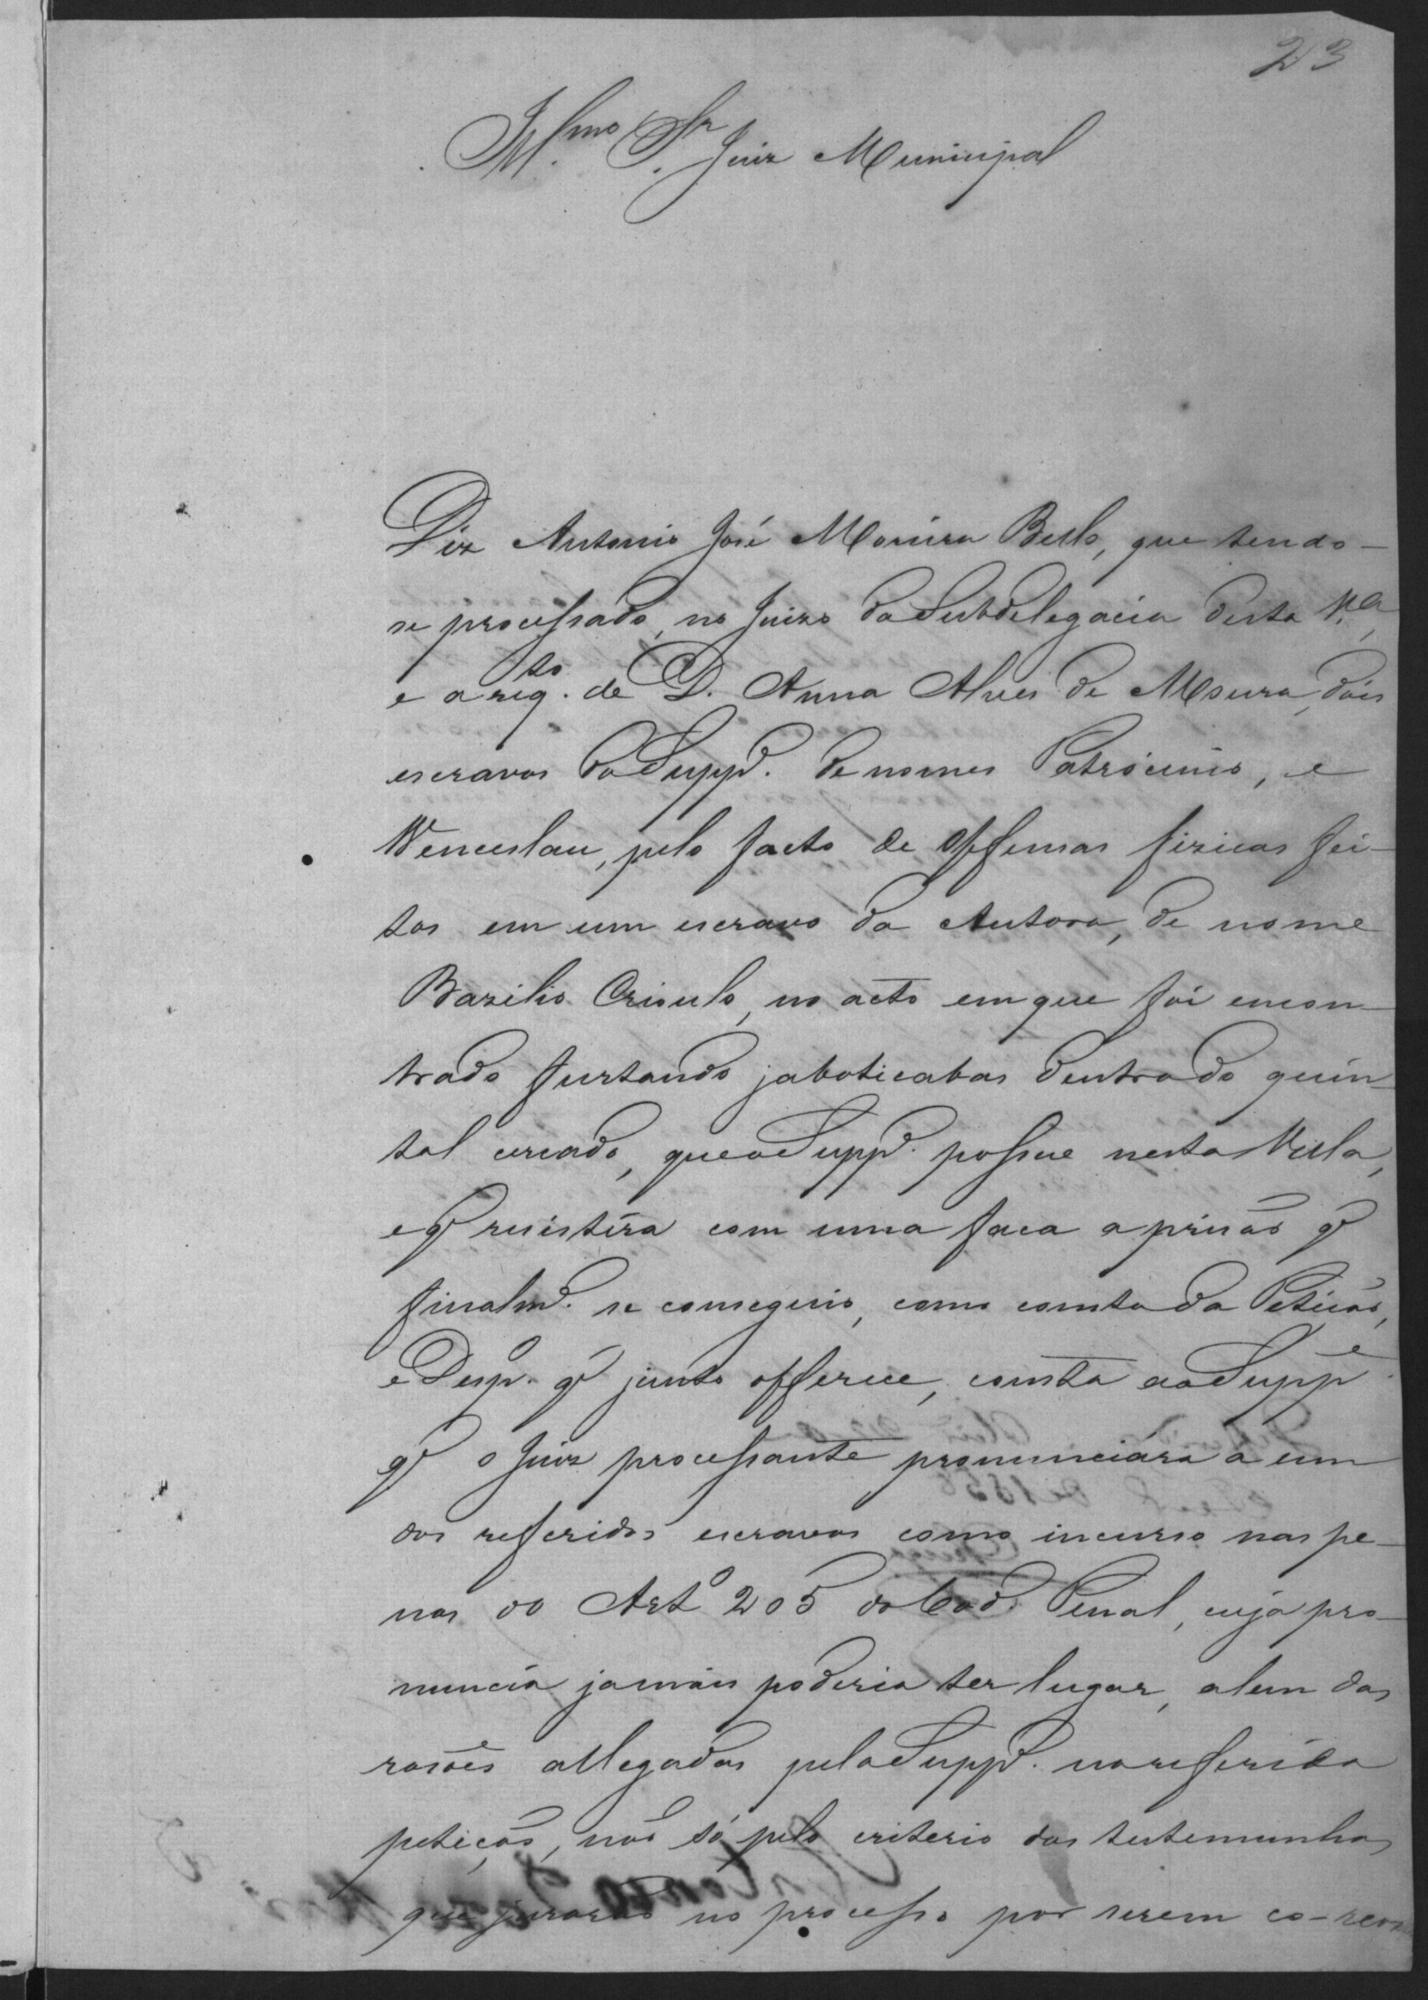 23
Ill.mo Sr. Juiz Municipal
Diz Antonio José Moreira Bello, que tendo-
se processado, no Juizo da Subdelegacia desta V.ª,
e a reqto. de D. Anna Alves de Moura, dois
escravos do Suppe. de nomes Patrocinio, e
Wenceslau, pelo facto de offensas fizicas fei-
tas em um escravo da Autora, de nome
Bazilio Crioulo, no acto em que foi encon-
trado furtando jaboticabas dentro do quin-
tal cercado, que o Suppe. possue nesta Villa,
e qe resistíra com uma faca a prisão qe
finalme. se conseguio, como consta da Petição,
e Despo. qe junto offerece, consta ao Suppe.
qe o Juiz processante pronunciára a um
dos referidos escravos como incurso nas pe-
nas do Arto 205 do Cod. Penal, cuja pro-
nuncia jamais poderia ter lugar, alem das
rasões allegadas pelo Suppe. na referida
petição, não só pelo criterio das testemunhas
que jurarão no processo por serem co-reos